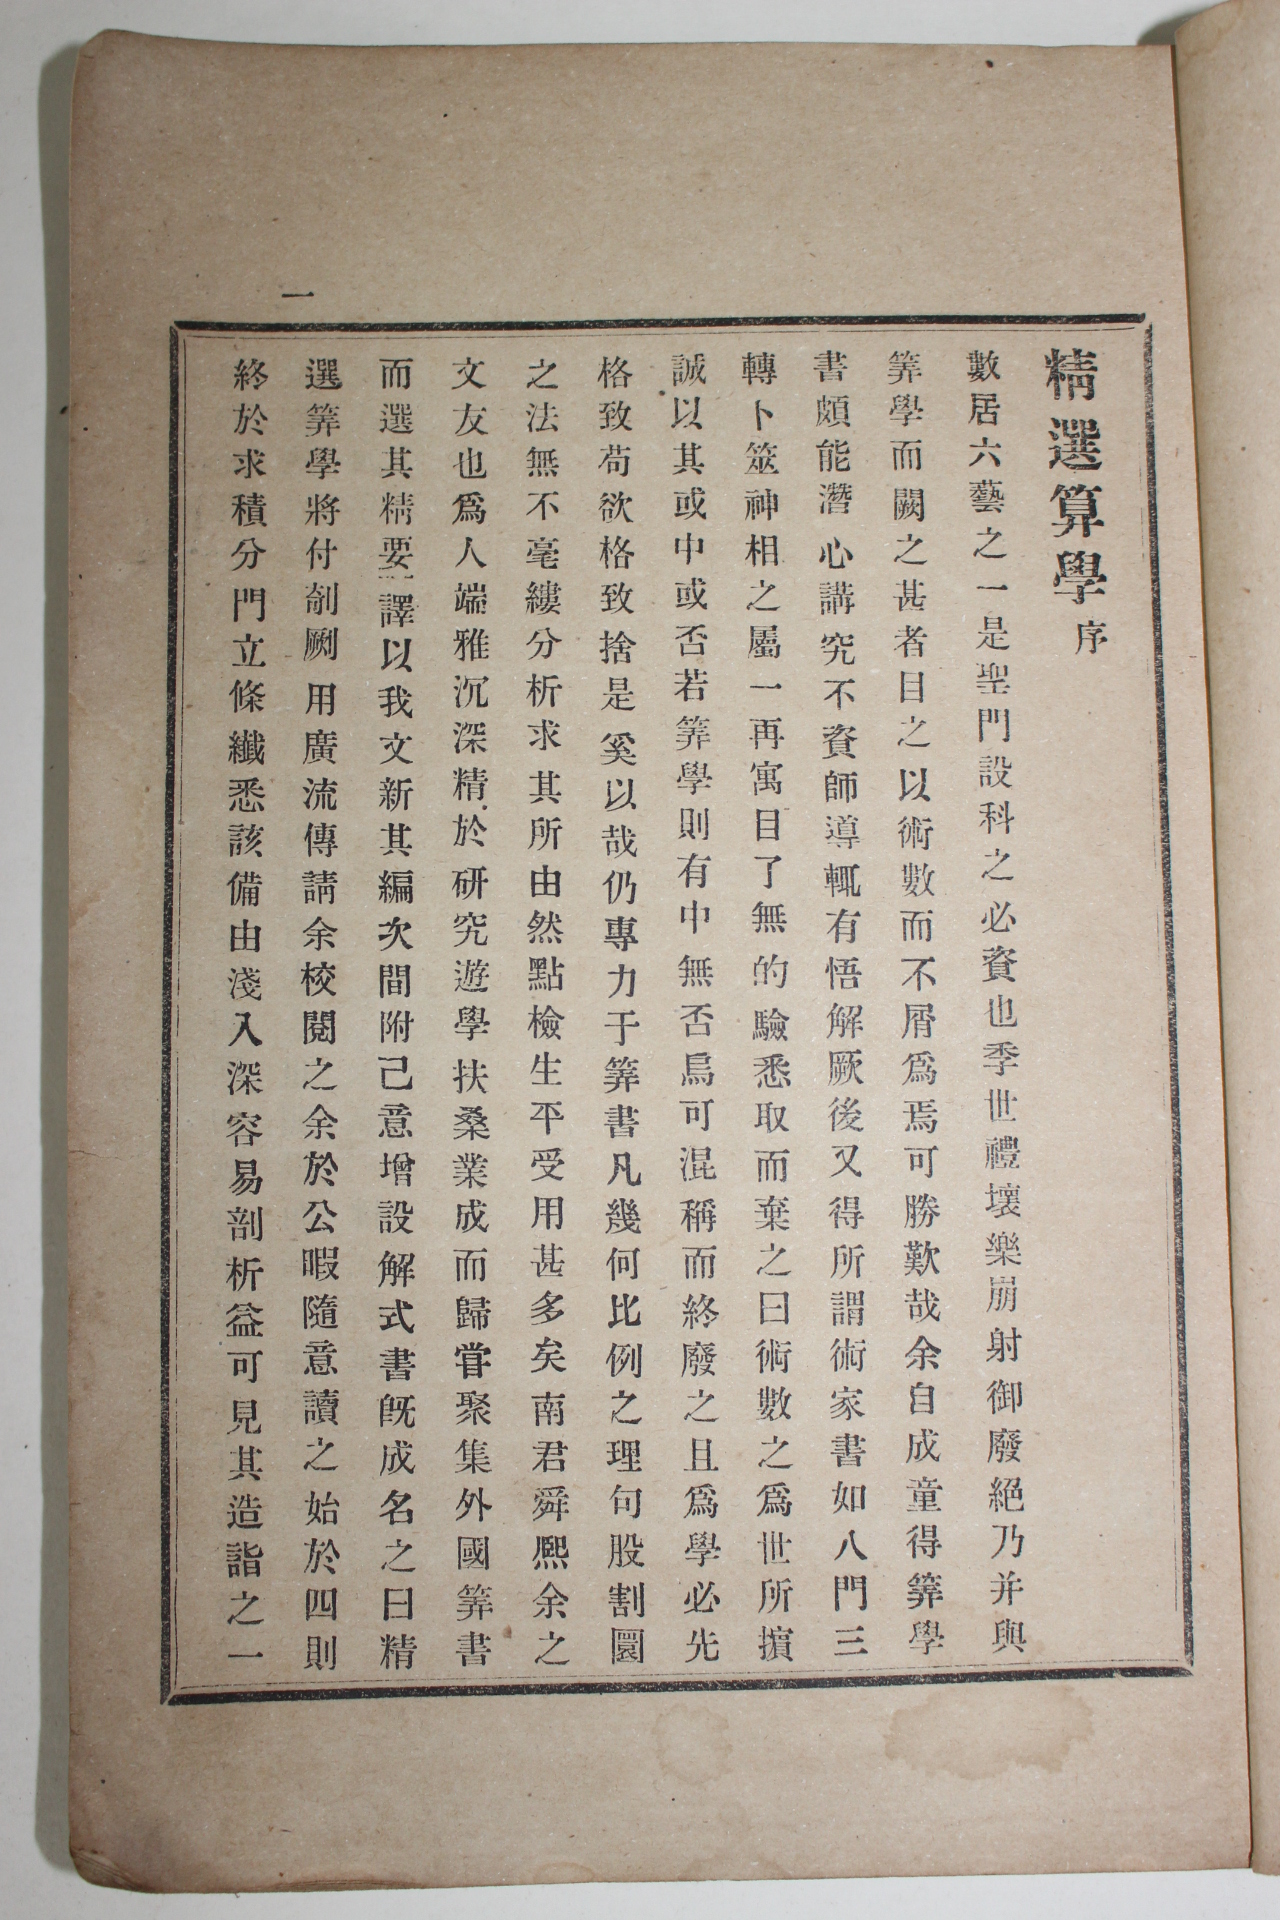 精選算學序
數居六藝之一是聖門設科之必資也季世禮壞樂崩射御廢絕乃并與
筭學而闕之甚者目之以術數而不屑爲焉可勝歎哉余自成童得筭學
書頗能潛心講究不資師導輒有悟解厥後又得所謂術家書如八門三
轉卜筮神相之屬一再寓目了無的驗悉取而棄之曰術數之爲世所擯
誠以其或中或否若筭學則有中無否烏可混稱而終廢之且爲學必先
格致苟欲格致捨是奚以哉仍專力于筭書凡幾何比例之理句股割圜
之法無不毫縷分析求其所由然點檢生平受用甚多矣南君舜熙余之
文友也爲人端雅沉深精於研究遊學扶桑業成而歸甞聚集外國筭書
而選其精要譯以我文新其編次間附己意增設解式書旣成名之曰精
選筭學將付剞劂用廣流傳請余校閱之余於公暇隨意讀之始於四則
終於求積分門立條纖悉該備由淺入深容易剖析益可見其造詣之一
一